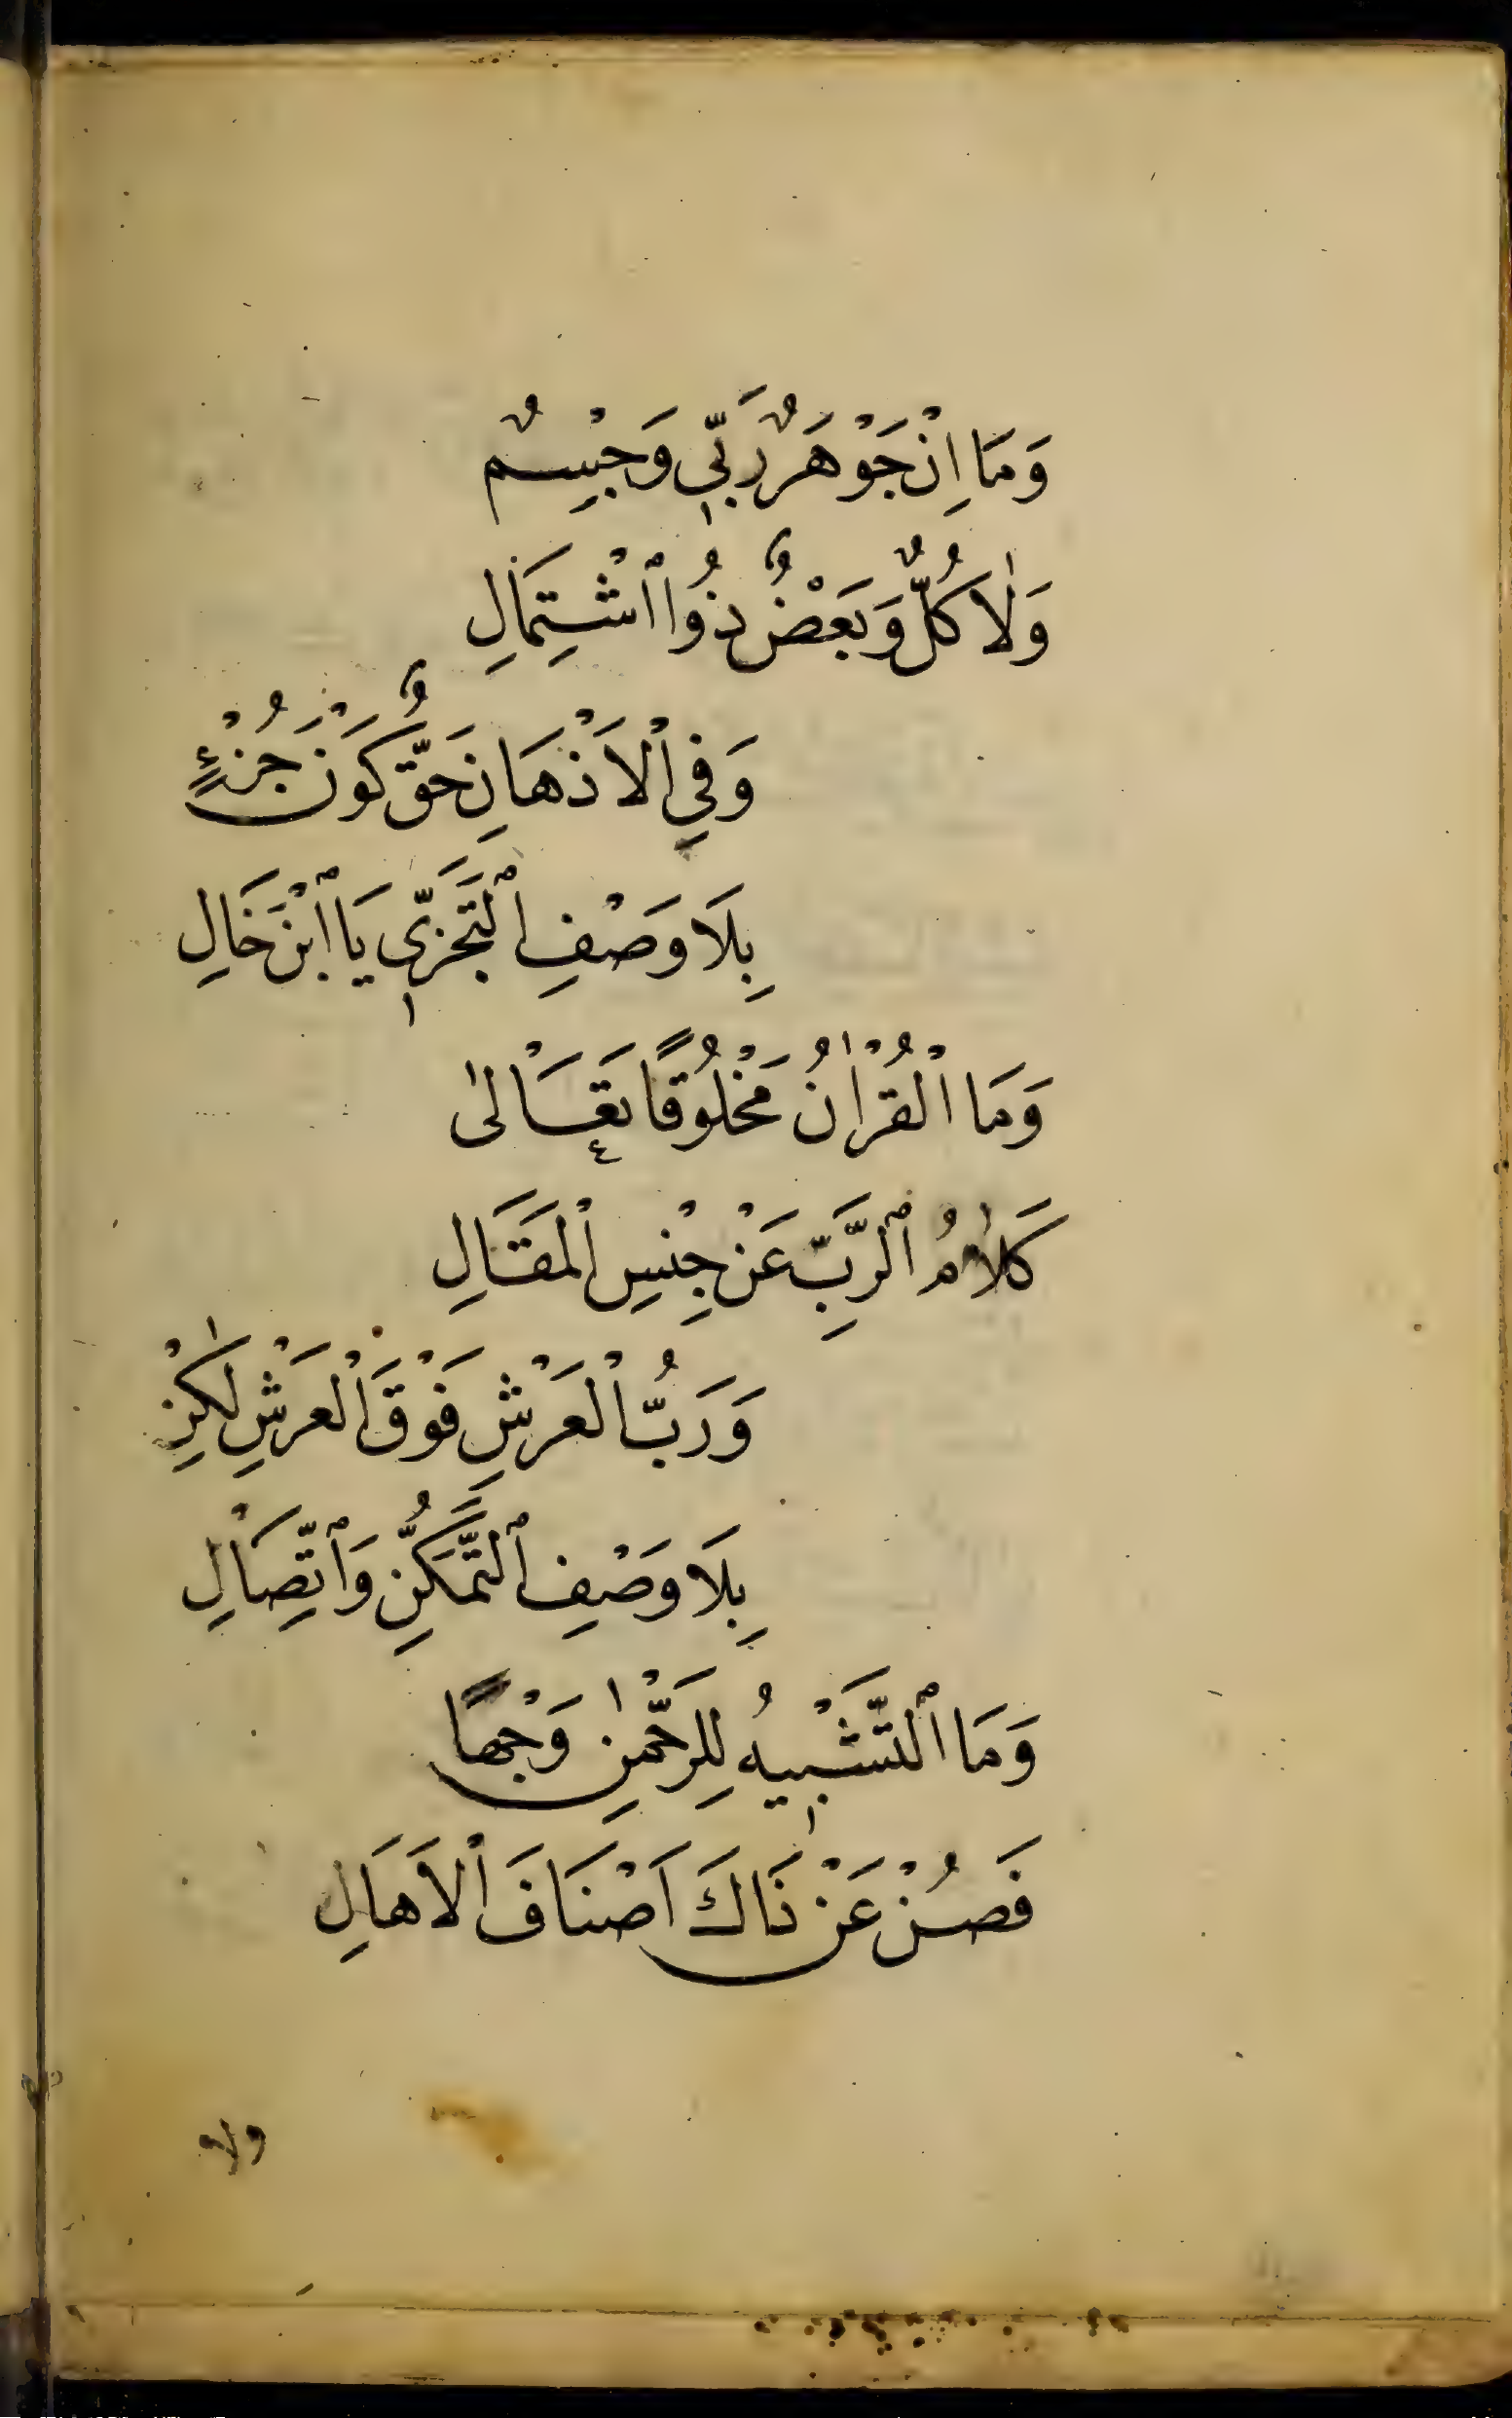 وَمَا اِنْ جَوْهَرٌ رَبّٖى وَجِسْمٌ
وَلٰا كُلٌّ وَبَعْضٌ ذُوا ٱشْتِمَالِ
وَفِي الْاَذْهَانِ حَقٌّ كَوْنُ جُزْءٍ
بِلَا وَصْفِ ٱلتَّجَزّٖى يَا ٱبْنَ خَالِ
وَمَا الْقُرْاٰنُ مَخْلُوقًا تَعَالىٰ
كَلٰامُ ٱلرَّبِّ عَنْ جِنْسِ الْمَقَالِ
وَرَبُّ الْعَرْشِ فَوْقَ الْعَرْشِ لٰكِنْ
بِلَا وَصْفِ ٱلتَّمَكُّنِ وَٱتِّصَالِ
وَمَا ٱلتَّشْبٖيهُ لِلرَّحْمٰنِ وَجْهًا
فَصُنْ عَنْ ذَاكَ اَصْنَافَ الْاَهَالِ
ولا